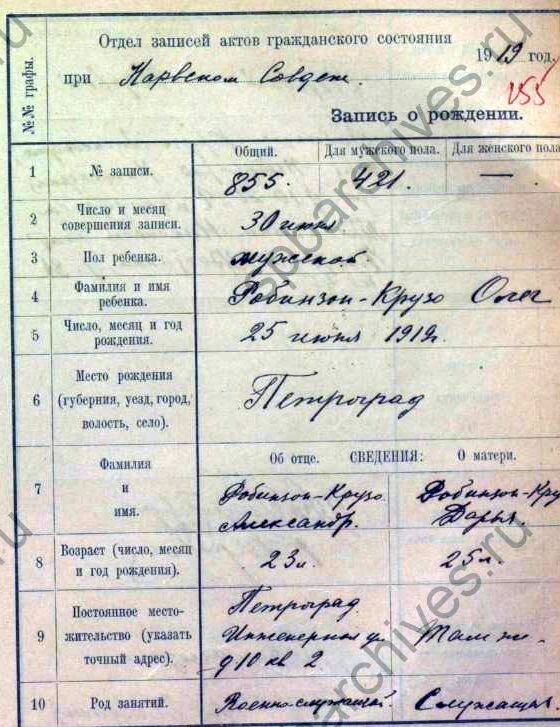 №№ графы.
Отдел записей актов гражданского состояния
при Нарвском Совдепе 1919 год.
155
Запись о рождении.
Общий. Для мужского пола. Для женского пола
1 № записи. 855. 421. —
2 Число и месяц
совершения записи. 30 июня
3 Пол ребенка. мужской.
4 Фамилия и имя
ребенка. Робинзон-Крузо Олег
5 Число, месяц и год
рождения. 25 июня 1919г.
6 Место рождения
(губерния, уезд, город,
волость, село). Петроград
Об отце. СВЕДЕНИЯ: О матери.
7 Фамилия
и
имя. Робинзон-Крузо Робинзон-Кру
Александр. Дарья.
8 Возраст (число, месяц
и год рождения). 23л. 25л.
9 Постоянное место-
жительство (указать
точный адрес). Петроград
Инженерная у. Там же
д 10 кв 2.
10 Род занятий. Военно-служащий. Служащая
spbarchives.ru